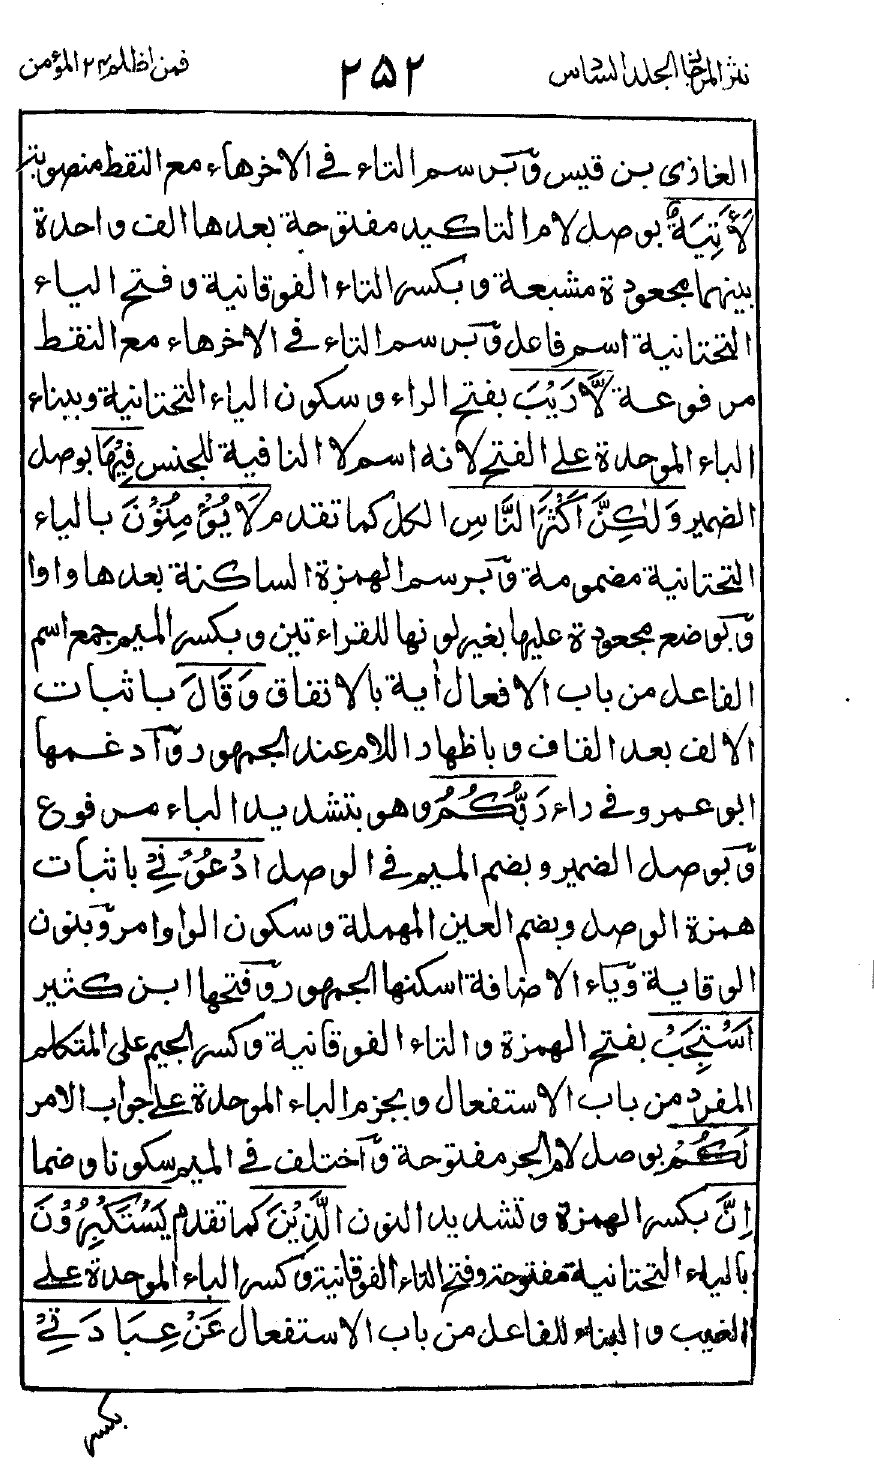 نثر المرجان الجلد السادس
٢٥٢
فمن اظلم ٢٤ المؤمن
الغاذى بن قيس وَبرسم التاء فى الاخر هاء مع النقط منصوبة
لَأٰتِيَةٌ بوصل لام التاكيد مفتوحة بعدها الف واحدة
بينهما مجعودة مشبعة وبكسر التاء الفوقانية وفتح الياء
التحتانية اسم فاعل وَبرسم التاء فى الاخر هاء مع النقط
مرفوعة لَّا رَيْبَ بفتح الراء وسكون الياء التحتانية وببناء
الباء الموحدة على الفتح لانه اسم لا النافية للجنس فِيْهَا بوصل
الضمير وَلٰكِنَّ اَكْثَرَ النَّاسِ الكل كما تقدم لَا يُؤْمِنُوْنَ بالياء
التحتانية مضمومة وَبرسم الهمزة الساكنة بعدها واوا
وَبوضع مجعودة عليها بغير لونها للقراءتين وبكسر الميم جمع اسم
الفاعل من باب الافعال أية بالاتفاق وَقَالَ باثبات
الالف بعد القاف وباظهار اللام عند الجمهور وَادغمها
ابو عمرو فى راء رَبُّكُمُ وهو بتشديد الباء مرفوع
وَبوصل الضمير وبضم الميم فى الوصل ادْعُوْنِىْ باثبات
همزة الوصل وبضم العين المهملة وسكون الواو امر وَبنون
الوقاية وَياء الاضافة اسكنها الجمهور وَفتحها ابن كثير
اَسْتَجِبْ بفتح الهمزة والتاء الفوقانية وَكسر الجيم على المتكلم
المفرد من باب الاستفعال وبجزم الباء الموحدة على جواب الامر
لَكُمْ بوصل لام الجر مفتوحة وَاختلف فى الميم سكونا وضما
اِنَّ بكسر الهمزة وتشديد النون الَّذِيْنَ كما تقدم يَسْتَكْبِرُوْنَ
بالياء التحتانية مفتوحة وفتح التاء الفوقانية وَكسر الباء الموحدة على
الغيب والبناء للفاعل من باب الاستفعال عَنْ عِبَادَتِىْ
بكسر